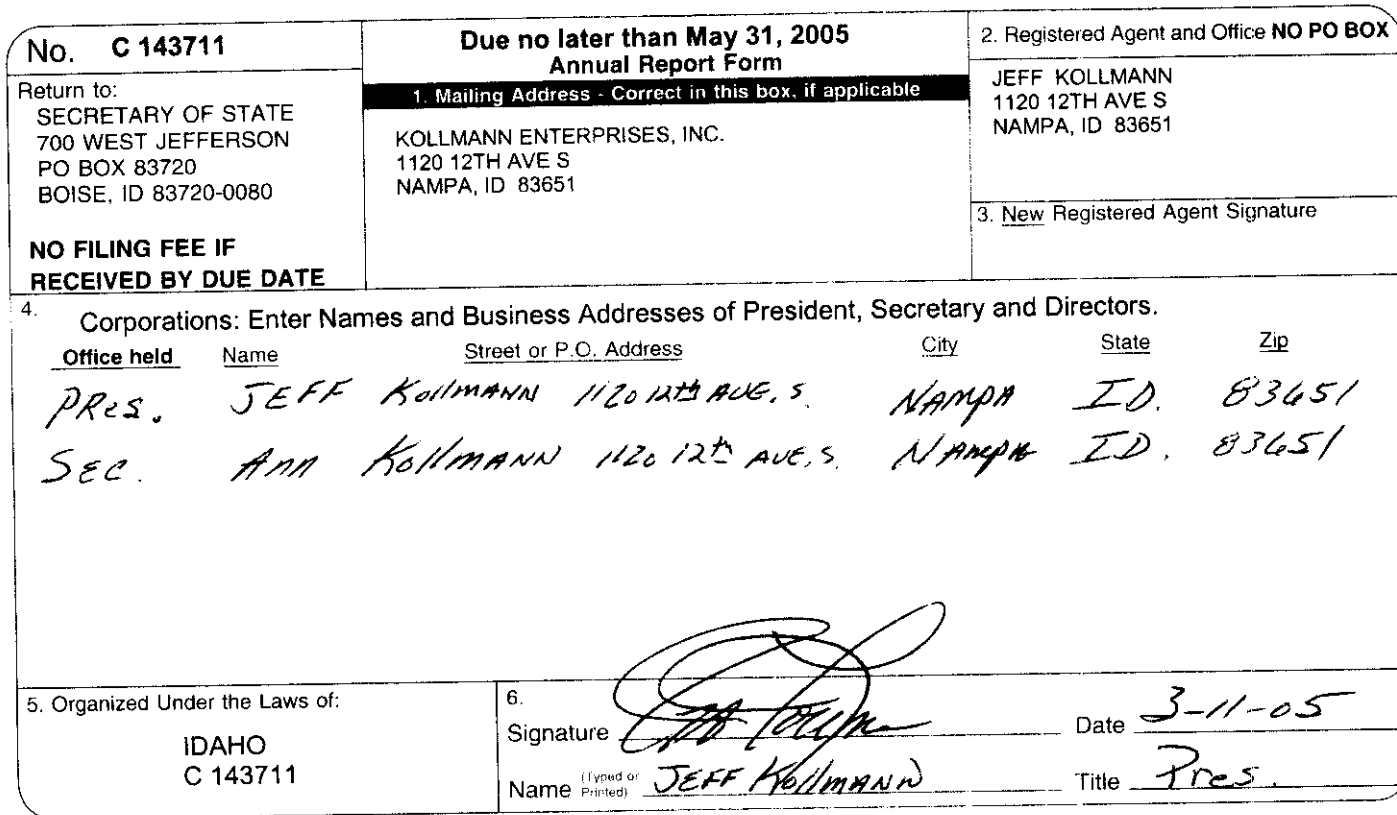 No. C 143711
Return to:
SECRETARY OF STATE
700 WEST JEFFERSON
PO BOX 83720
BOISE, ID 83720-0080
NO FILING FEE IF
RECEIVED BY DUE DATE
Due no later than May 31, 2005
Annual Report Form
1. Mailing Address - Correct in this box, if applicable
KOLLMANN ENTERPRISES, INC.
1120 12TH AVE S
NAMPA, ID 83651
2. Registered Agent and Office NO PO BOX
JEFF KOLLMANN
1120 12TH AVE S
NAMPA, ID 83651
3. New Registered Agent Signature
4. Corporations: Enter Names and Business Addresses of President, Secretary and Directors.
Office held Name Street or P.O. Address City State Zip
PRes. JEFF KollMANN 1120 12th AVE. S. NAMPA ID. 83651
SEC. Ann KollMANN 1120 12th AVE. S. NAMPA ID. 83651
5. Organized Under the Laws of:
IDAHO
C 143711
6.
Signature Date 3-11-05
Name (Typed or Printed) JEFF KollMANN Title Pres.